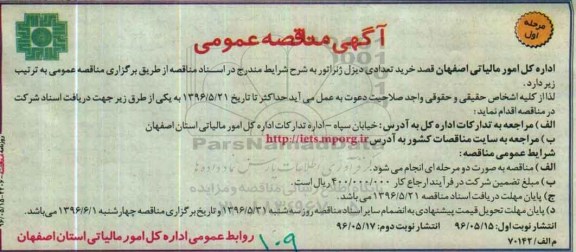 آگهی مناقصه عمومی
مرحله اول
اداره کل امور مالیاتی اصفهان قصد خرید تعدادی دیزل ژنراتور به شرح شرایط مندرج در اسناد مناقصه از طریق برگزاری مناقصه عمومی به ترتیب
زیر دارد.
لذا از کلیه اشخاص حقیقی و حقوقی واجد صلاحیت دعوت به عمل می آید حداکثر تا تاریخ ۱۳۹۶/۵/۲۱ به یکی از طرق زیر جهت دریافت اسناد شرکت
در مناقصه اقدام نمایند:
الف) مراجعه به تدارکات اداره کل به آدرس: خیابان سپاه - اداره تدارکات اداره کل امور مالیاتی استان اصفهان
ب) مراجعه به سایت مناقصات کشور به آدرس http://iets.mporg.ir
شرایط عمومی مناقصه:
الف) مناقصه به صورت دو مرحله ای انجام می شود.
ب) مبلغ تضمین شرکت در فرآیند ارجاع کار ۴۰۰/۰۰۰/۰۰۰ ریال است.
ج) پایان مهلت دریافت اسناد مناقصه ۱۳۹۶/۵/۲۱ می باشد.
د) پایان مهلت تحویل قیمت پیشنهادی به انضمام سایر اسناد مناقصه روز سه شنبه ۱۳۹۶/۵/۳۱ و تاریخ برگزاری مناقصه چهارشنبه ۱۳۹۶/۶/۱ می باشد.
نوبت اول: ۹۶/۰۵/۱۵ نوبت دوم: ۹۶/۰۵/۱۷
م الف/ ۷۰۱۴۲
روابط عمومی اداره کل امور مالیاتی استان اصفهان
۱۰۹
ParsNamadData